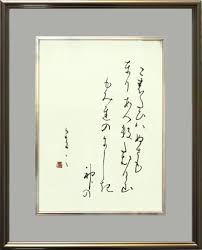 このたびはぬさも
とりあへずたむけ山
もみぢのにしき
神の